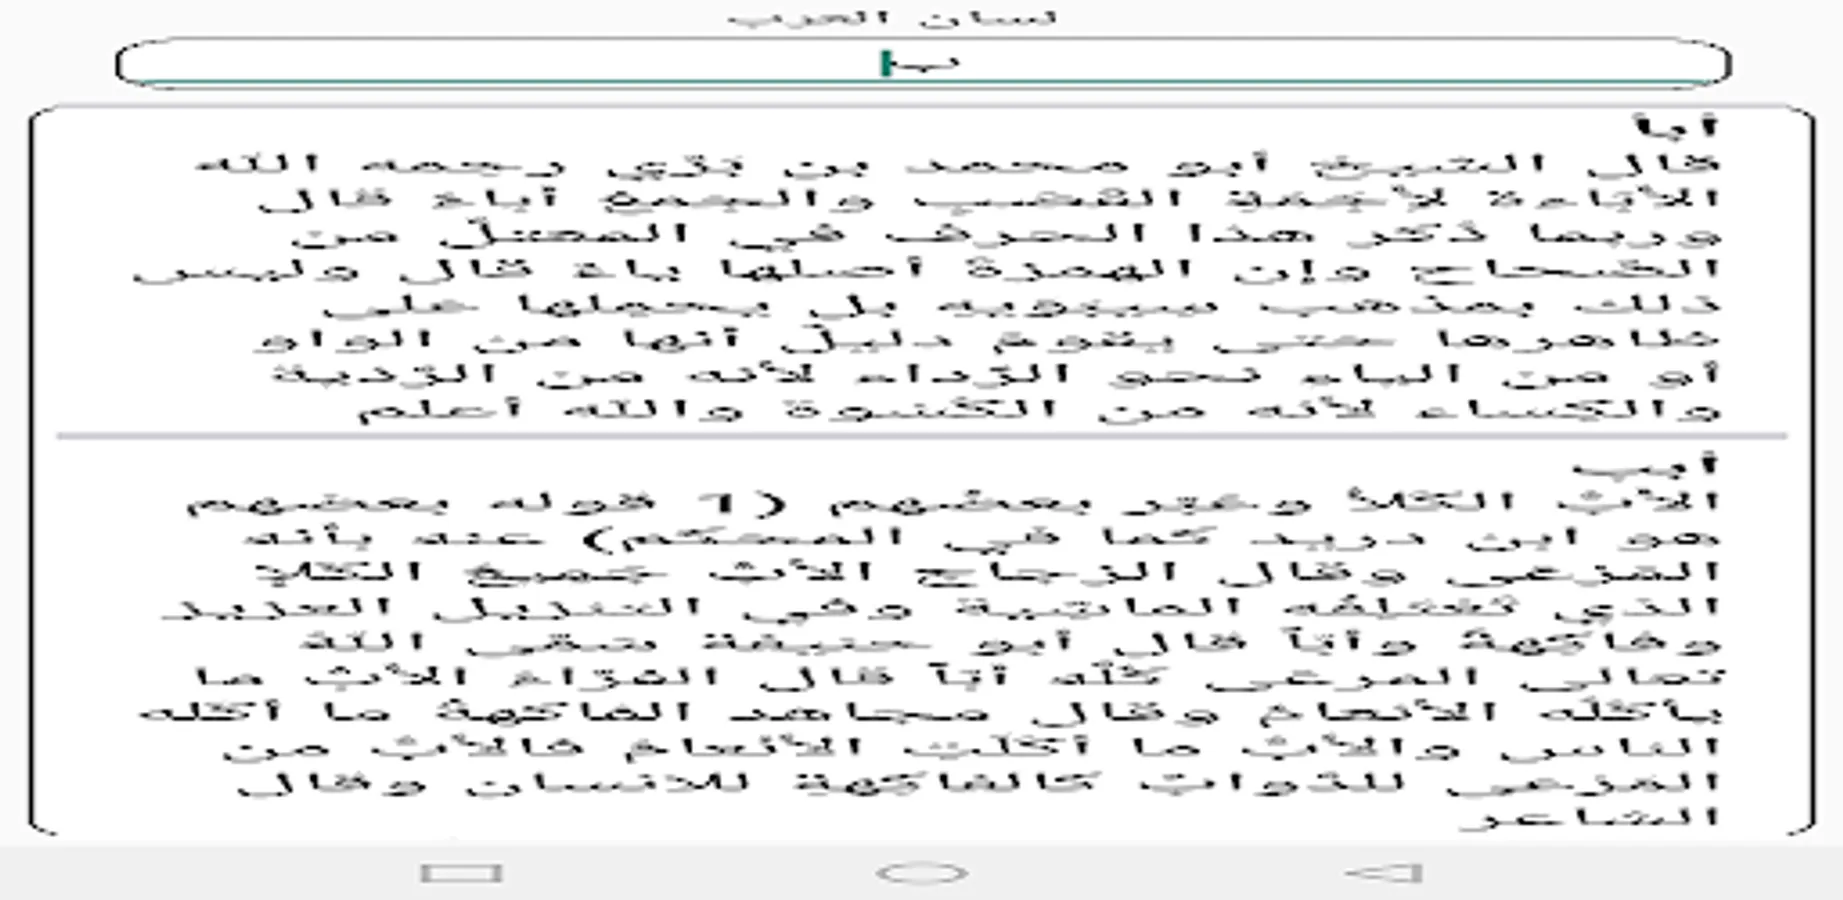 لسان العرب
ب
أبأ
قال الشيخ أبو محمد بن بَرّي رحمه الله
الأباءة لأَجَمَةِ القَصَبِ والجمعُ أباء قال
وربما ذُكر هذا الحرف في المعتلّ من
الصِّحاح وإن الهمزة أصلها ياء قال وليس
ذلك بمذهب سيبويه بل يحملها على
ظاهرها حتى يقومَ دليلٌ أنها من الواو
أو من الياء نحو الرِّداء لأنه من الرَّدْية
والكساء لأنه من الكُسْوة والله أعلم
أبب
الأَبُّ الكَلأُ وعَبَّر بعضُهم (1 قوله بعضهم
هو ابن دريد كما في المحكم) عنه بأنه
المَرْعى وقال الزجاج الأَبُّ جَمِيعُ الكَلإِ
الذي تَعْتَلِفُه الماشِية وفي التنزيل العزيز
وفاكِهةً وأَبّاً قال أبو حنيفة سَمَّى اللهُ
تعالى المرعى كُلَّه أَبّاً قال الفرَّاء الأَبُّ ما
يأْكُلُه الأَنعامُ وقال مجاهد الفاكهةُ ما أَكَله
الناس والأَبُّ ما أَكَلَتِ الأَنْعامُ فالأَبُّ من
المَرْعى للدَّوابِّ كالفاكِهةِ للانسان وقال
الشاعر